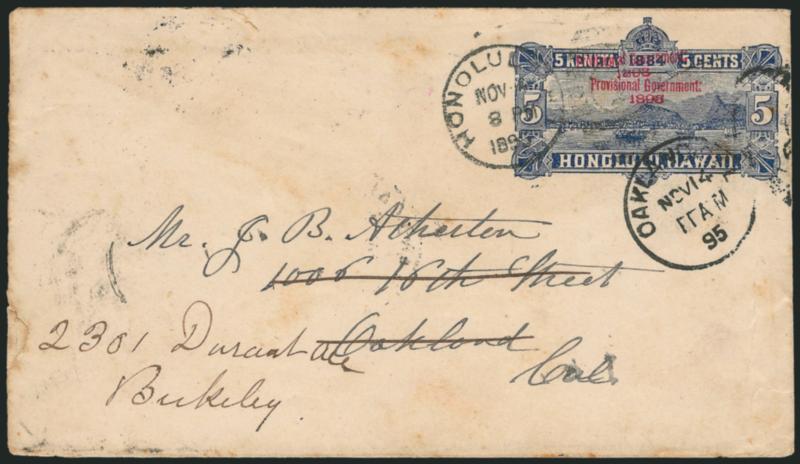 HONOLULU
NOV
8 PM
1895
5 KENETA. 1884 5 CENTS
Provisional Government.
1893
Provisional Government.
1893
5 5
HONOLULU, HAWAII
OAKLAND
NOV 14
11 AM
95
Mr. J. B. Atherton
1006 16th Street
Oakland
Cal.
2301 Durant ave
Berkeley